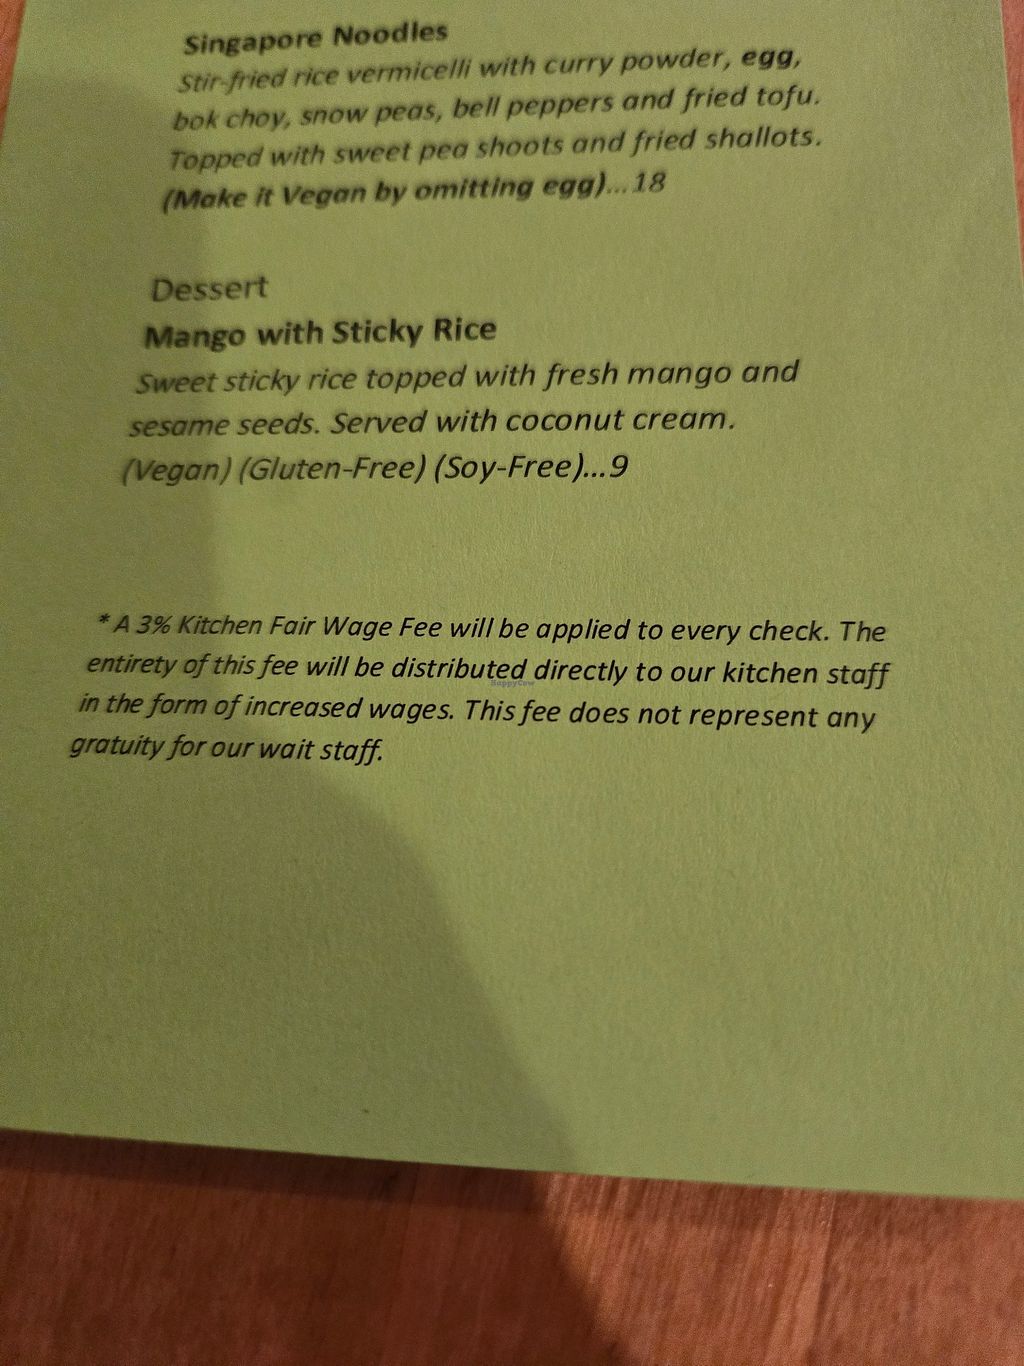 Singapore Noodles
Stir-fried rice vermicelli with curry powder, egg,
bok choy, snow peas, bell peppers and fried tofu.
Topped with sweet pea shoots and fried shallots.
(Make it Vegan by omitting egg)...18
Dessert
Mango with Sticky Rice
Sweet sticky rice topped with fresh mango and
sesame seeds. Served with coconut cream.
(Vegan) (Gluten-Free) (Soy-Free)...9
* A 3% Kitchen Fair Wage Fee will be applied to every check. The
entirety of this fee will be distributed directly to our kitchen staff
HappyCow
in the form of increased wages. This fee does not represent any
gratuity for our wait staff.